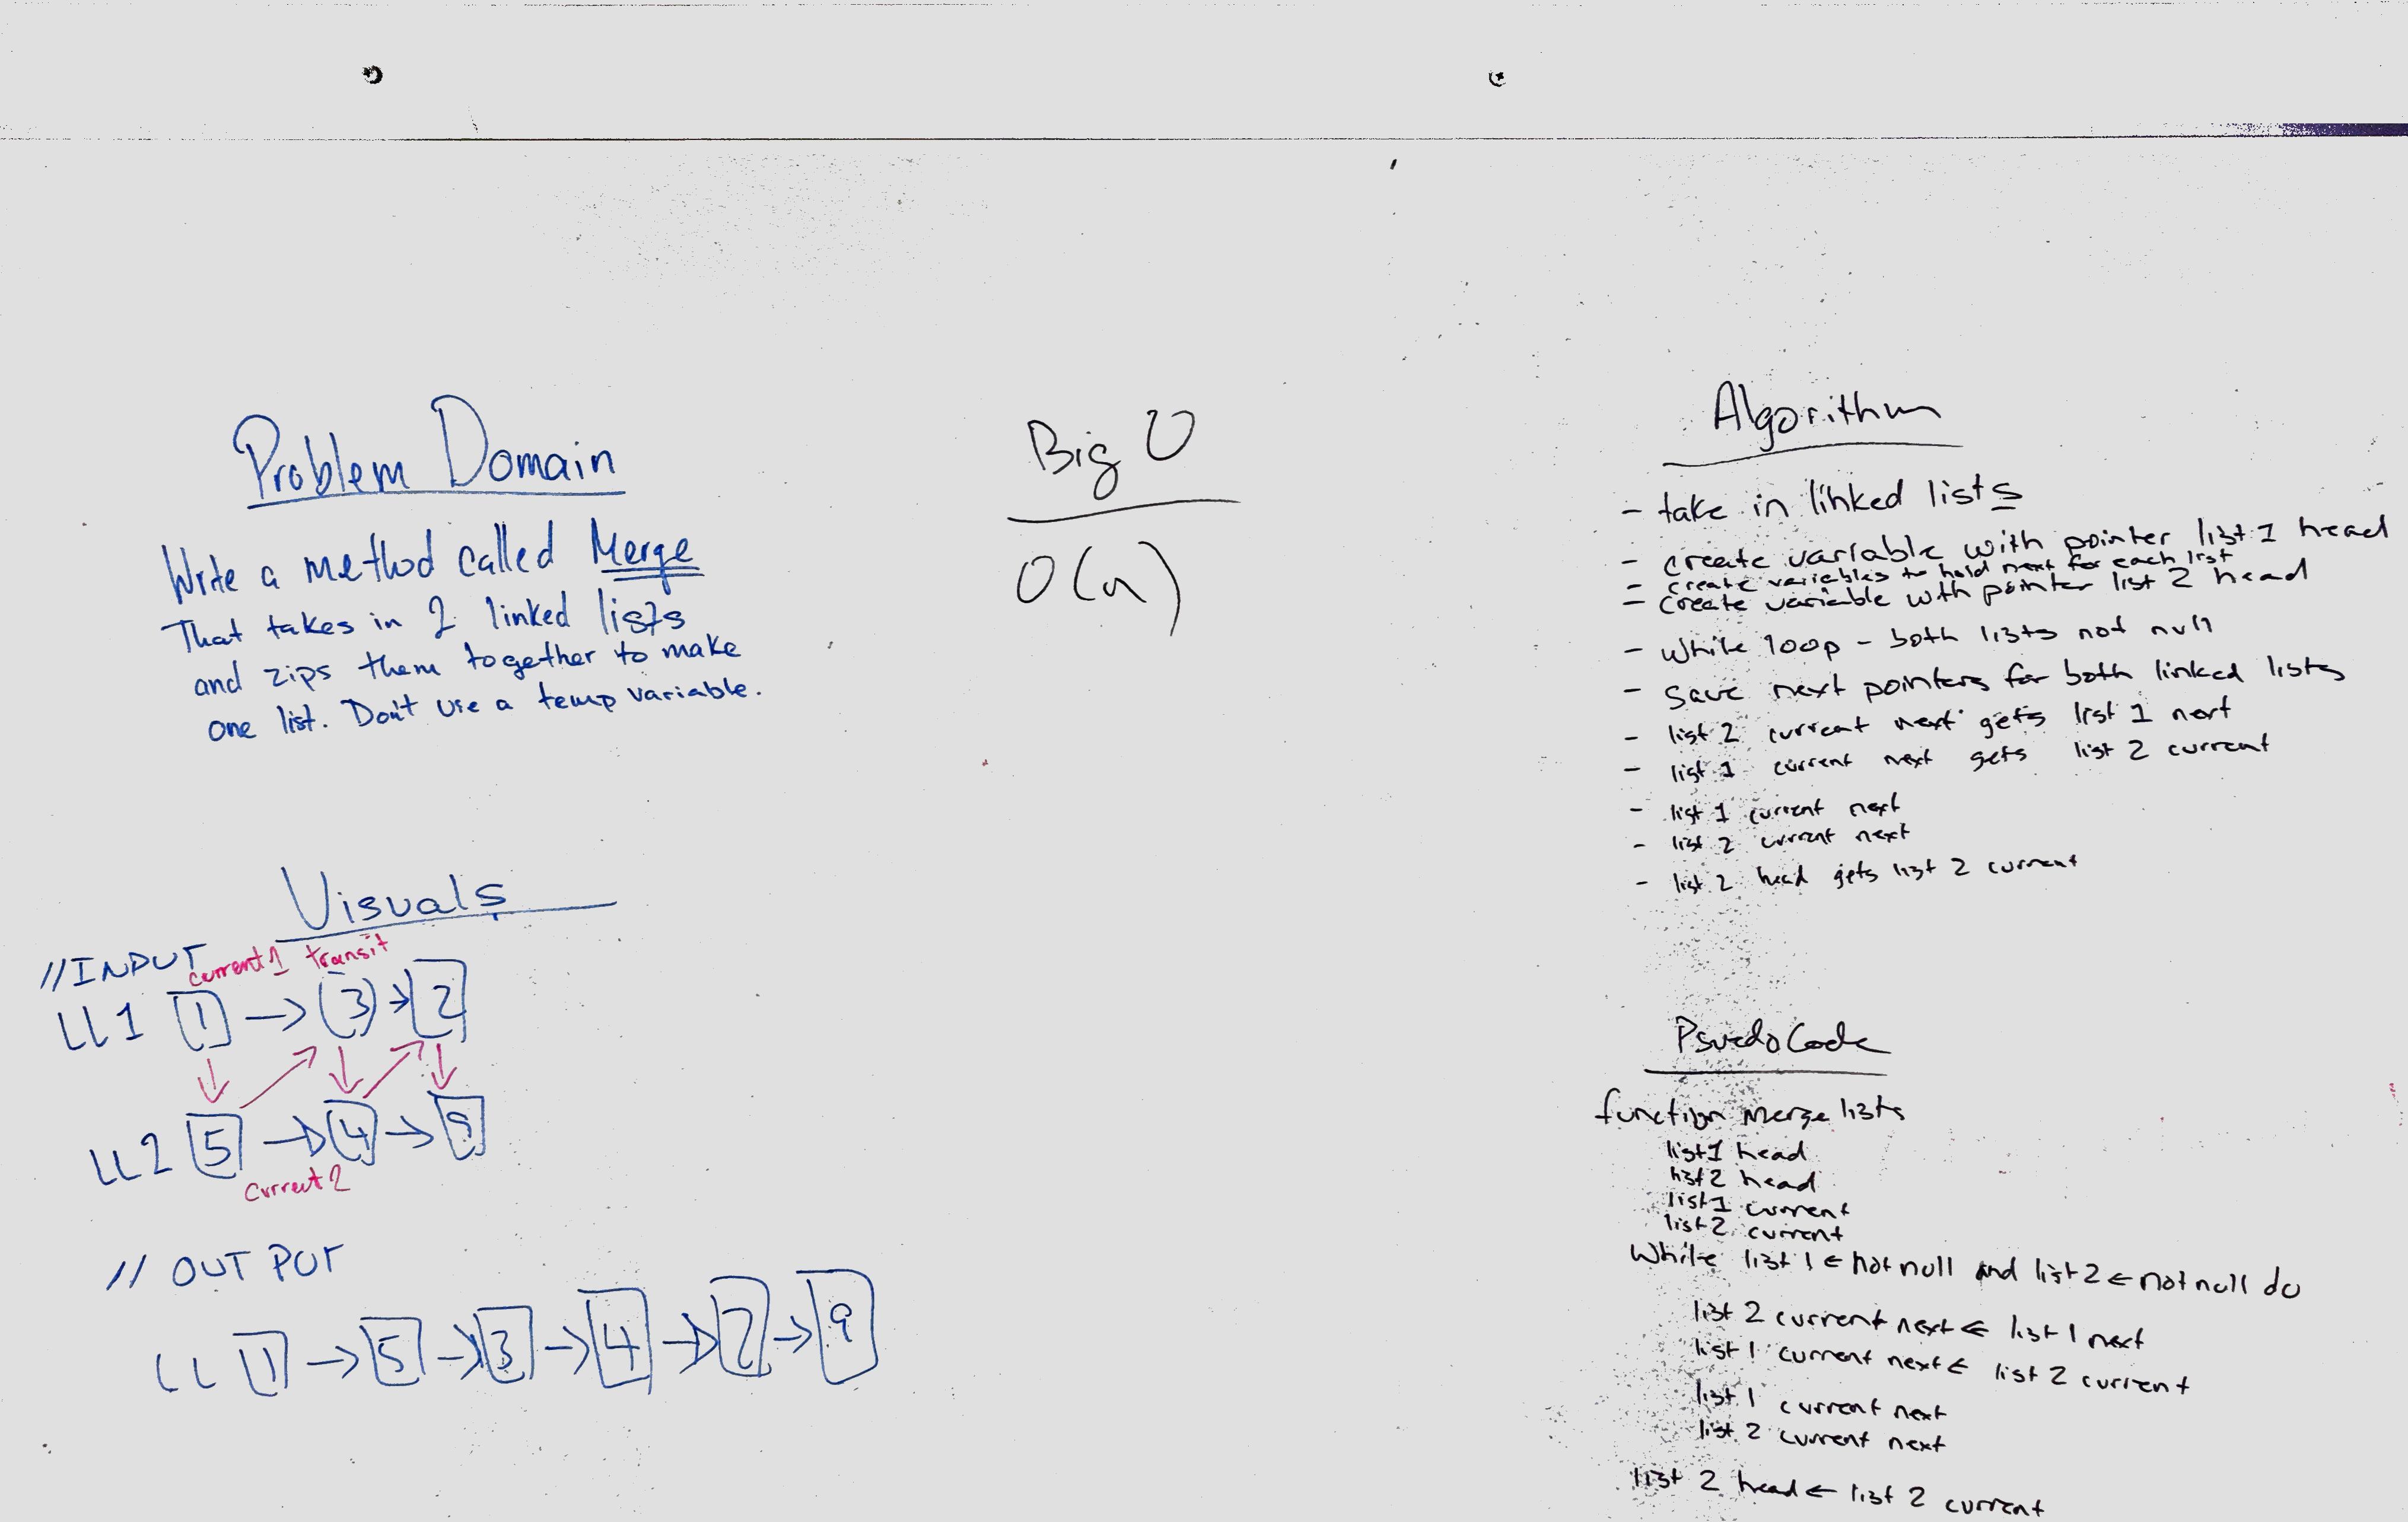 Problem Domain
Write a method called Merge
That takes in 2 linked lists
and zips them together to make
one list. Don't use a temp variable.
Visuals
//INPUT
current1 transit
LL1 1 → 3 → 2
LL2 5 → 4 → 9
current2
// OUTPUT
LL 1 → 5 → 3 → 4 → 2 → 9
Big O
O(n)
Algorithm
- take in linked lists
- create variable with pointer list 1 head
- create variables to hold next for each list
- create variable with pointer list 2 head
- while loop - both lists not null
- save next pointers for both linked lists
- list 2 current next gets list 1 next
- list 1 current next gets list 2 current
- list 1 current next
- list 2 current next
- list 2 head gets list 2 current
Psuedo Code
function merge lists
list1 head
list2 head
list1 current
list2 current
While list 1 ← not null and list 2 ← not null do
list 2 current next ← list 1 next
list 1 current next ← list 2 current
list 1 current next
list 2 current next
list 2 head ← list 2 current